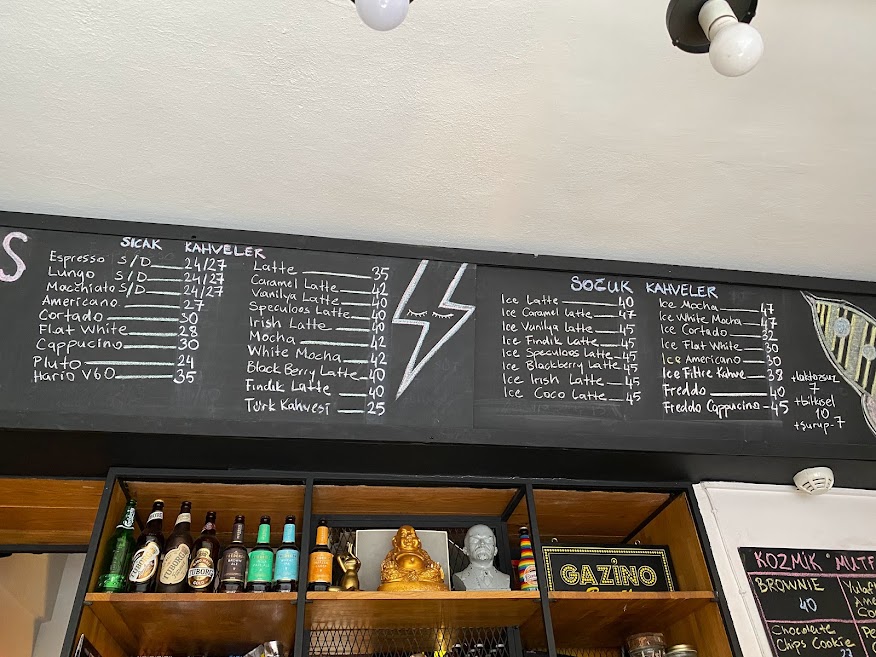 S
SICAK KAHVELER
Espresso S/D 24/27
Lungo S/D 24/27
Macchiato S/D 24/27
Americano 27
Cortado 30
Flat White 28
Cappucino 30
Pluto 24
Hario V60 35
Latte 35
Caramel Latte 42
Vanilya Latte 40
Speculoos Latte 40
Irish Latte 40
Mocha 42
White Mocha 42
Black Berry Latte 40
Fındık Latte 40
Türk Kahvesi 25
SOĞUK KAHVELER
Ice Latte 40
Ice Caramel Latte 47
Ice Vanilya Latte 45
Ice Fındık Latte 45
Ice Speculoos Latte 45
Ice Blackberry Latte 45
Ice Irish Latte 45
Ice Coco Latte 45
Ice Mocha 47
Ice White Mocha 47
Ice Cortado 32
Ice Flat White 30
Ice Americano 30
Ice Filtre Kahve 38
Freddo 40
Freddo Cappucino - 45
+laktozsuz
7
+bitkisel
10
+şurup-7
Carlsberg
TUBORG
TUBORG
GAZİNO
KOZMİK MUTF
BROWNIE
40
Chocolate
Chips Cookie